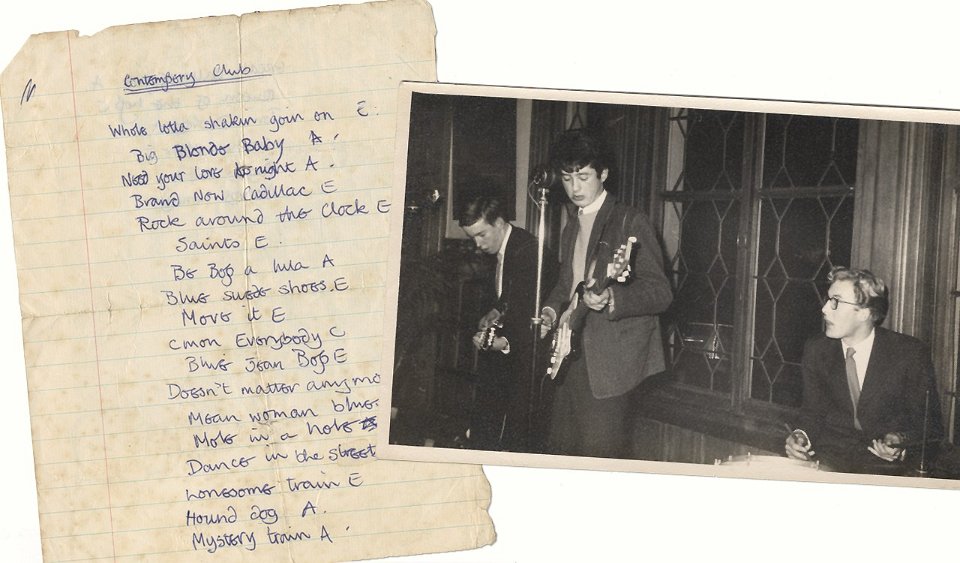 Contempory Club
Whole lotta shakin goin on E.
Big Blonde Baby A.
Need your love tonight A.
Brand New Cadillac E
Rock around the Clock E
Saints E.
Be Bop a lula A
Blue suede shoes. E
Move it E
Cmon Everybody C
Blue Jean Bop E
Doesn't matter anymo
Mean woman blue
Mole in a hole
Dance in the street
Lonesome train E
Hound dog A.
Mystery train A